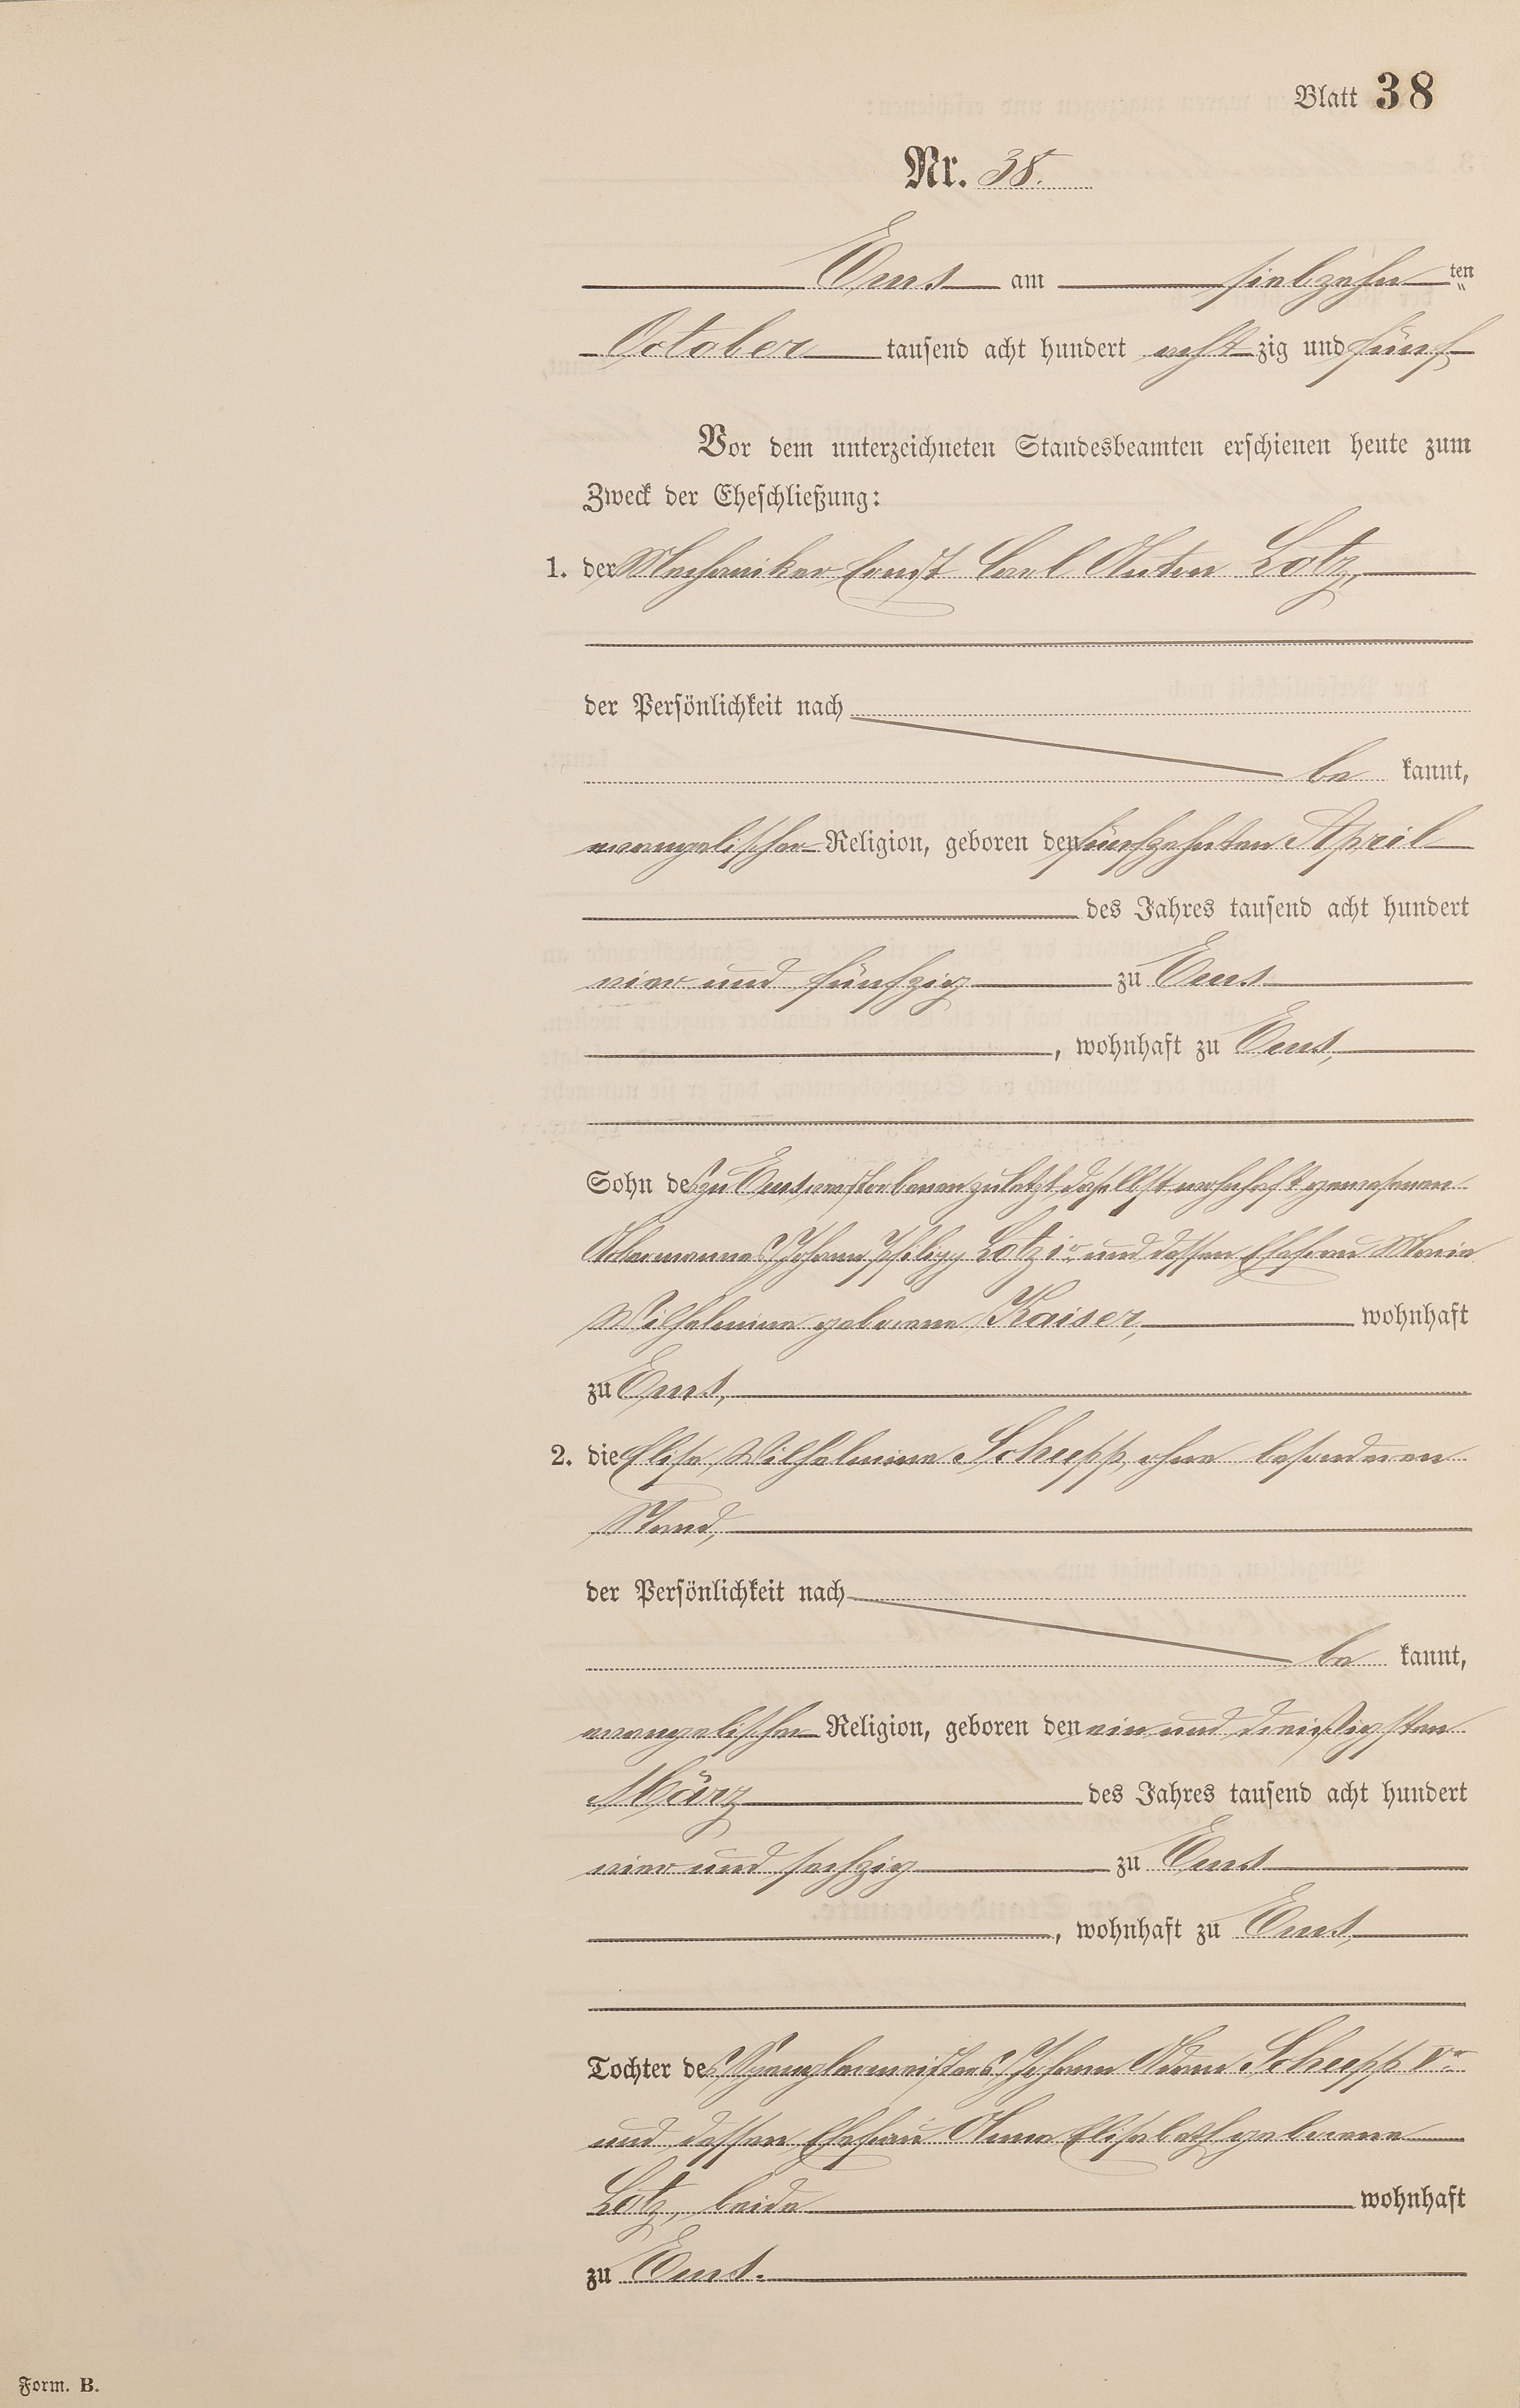 Blatt 38
Nr. 38.
Ems am siebzehn ten
October tausend acht hundert acht zig und fünf
Vor dem unterzeichneten Standesbeamten erschienen heute zum
Zweck der Eheschließung:
1. der Mechaniker Ernst Carl Anton Lotz,
der Persönlichkeit nach
be kannt,
evangelischer Religion, geboren den fünfzehnten April
des Jahres tausend acht hundert
vier und fünfzig zu Ems
, wohnhaft zu Ems,
Sohn des zu Ems verstorbenen zuletzt daselbst wohnhaft gewesenen
Ackermannes Johann Philipp Lotz und dessen Ehefrau Marie
Wilhelmine geborene Kaiser, wohnhaft
zu Ems,
2. die Elise Wilhelmine Schupp, ohne besonderen
Stand,
der Persönlichkeit nach
be kannt,
evangelischer Religion, geboren den ein und dreißigsten
März des Jahres tausend acht hundert
vier und sechzig zu Ems
, wohnhaft zu Ems,
Tochter des Spenglermeisters Johann Adam Schupp Vr
und dessen Ehefrau Anna Elisabeth geborene
Lotz, beide wohnhaft
zu Ems.
Form. B.